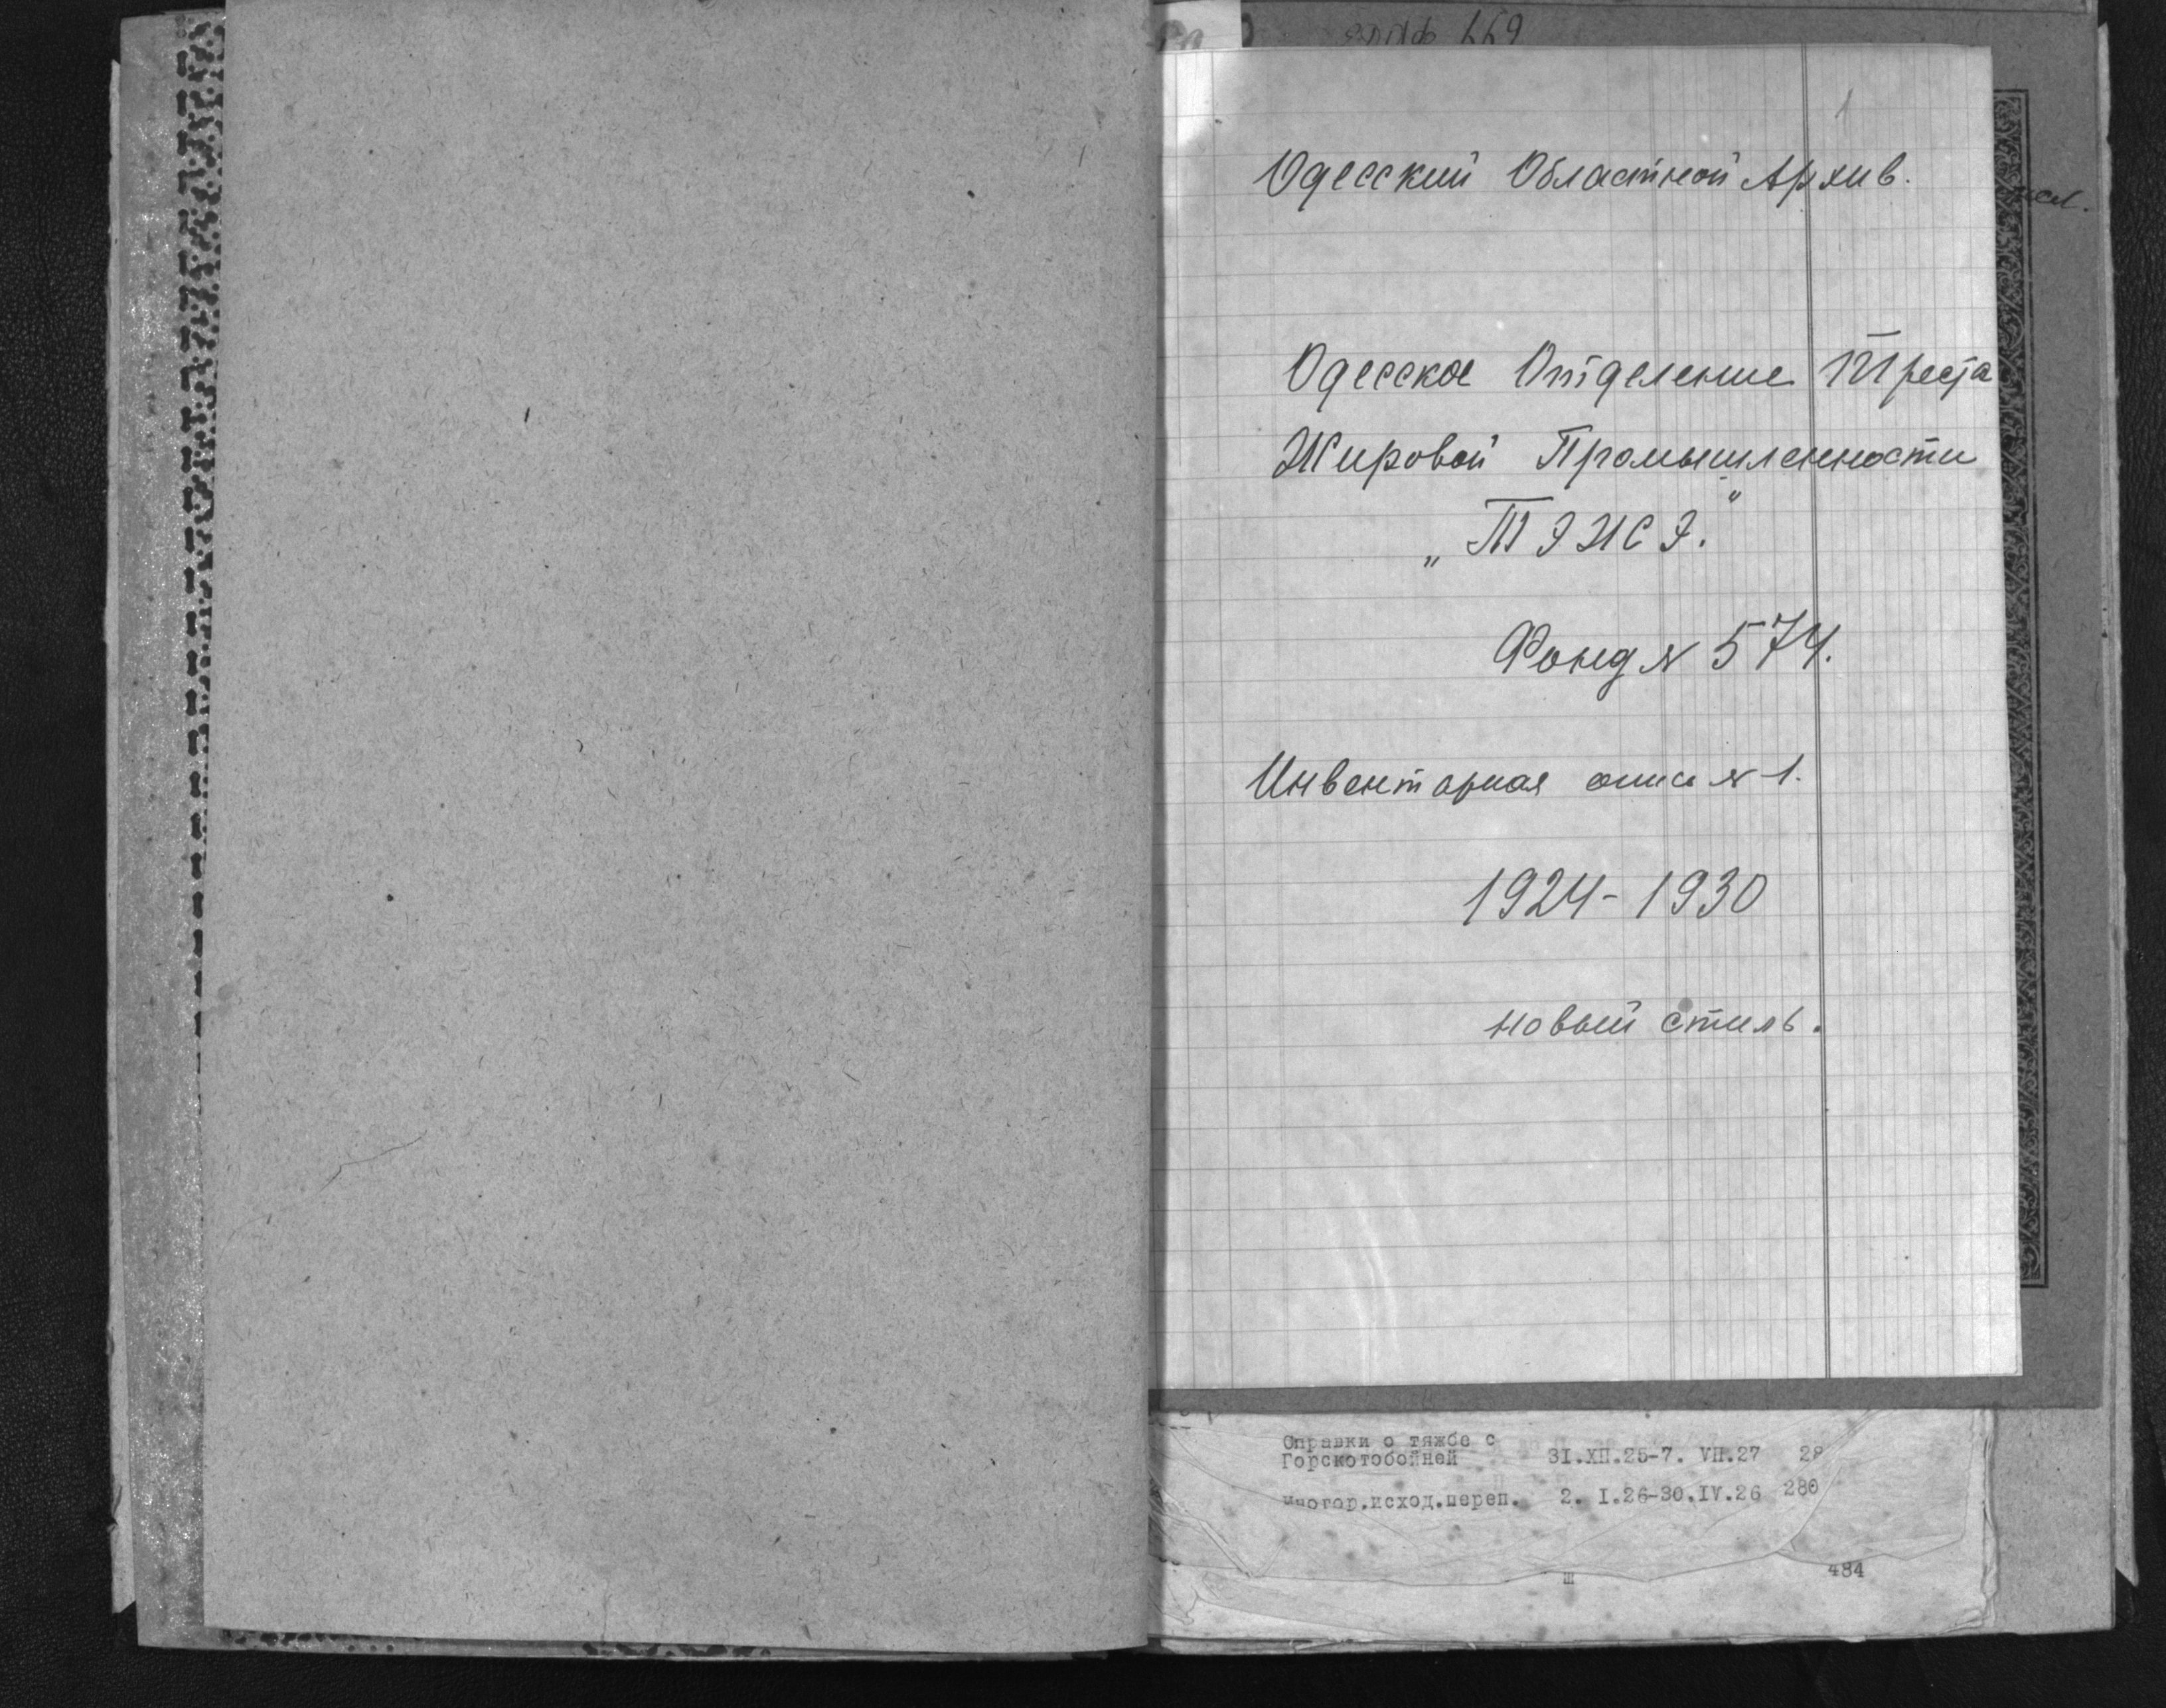 1
Одесский Областной Архив.
Одесское Отделение Треста
Жировой Промышленности
„ТЭЖЭ."
Фонд № 574.
Инвентарная опись № 1.
1924-1930
новый стиль.
Справки о тяжбе с
Горскотобойней 31.ХП.25-7. VП.27 28
Иногор.исход.переп. 2. I.26-30.IV.26 280
Ш 484